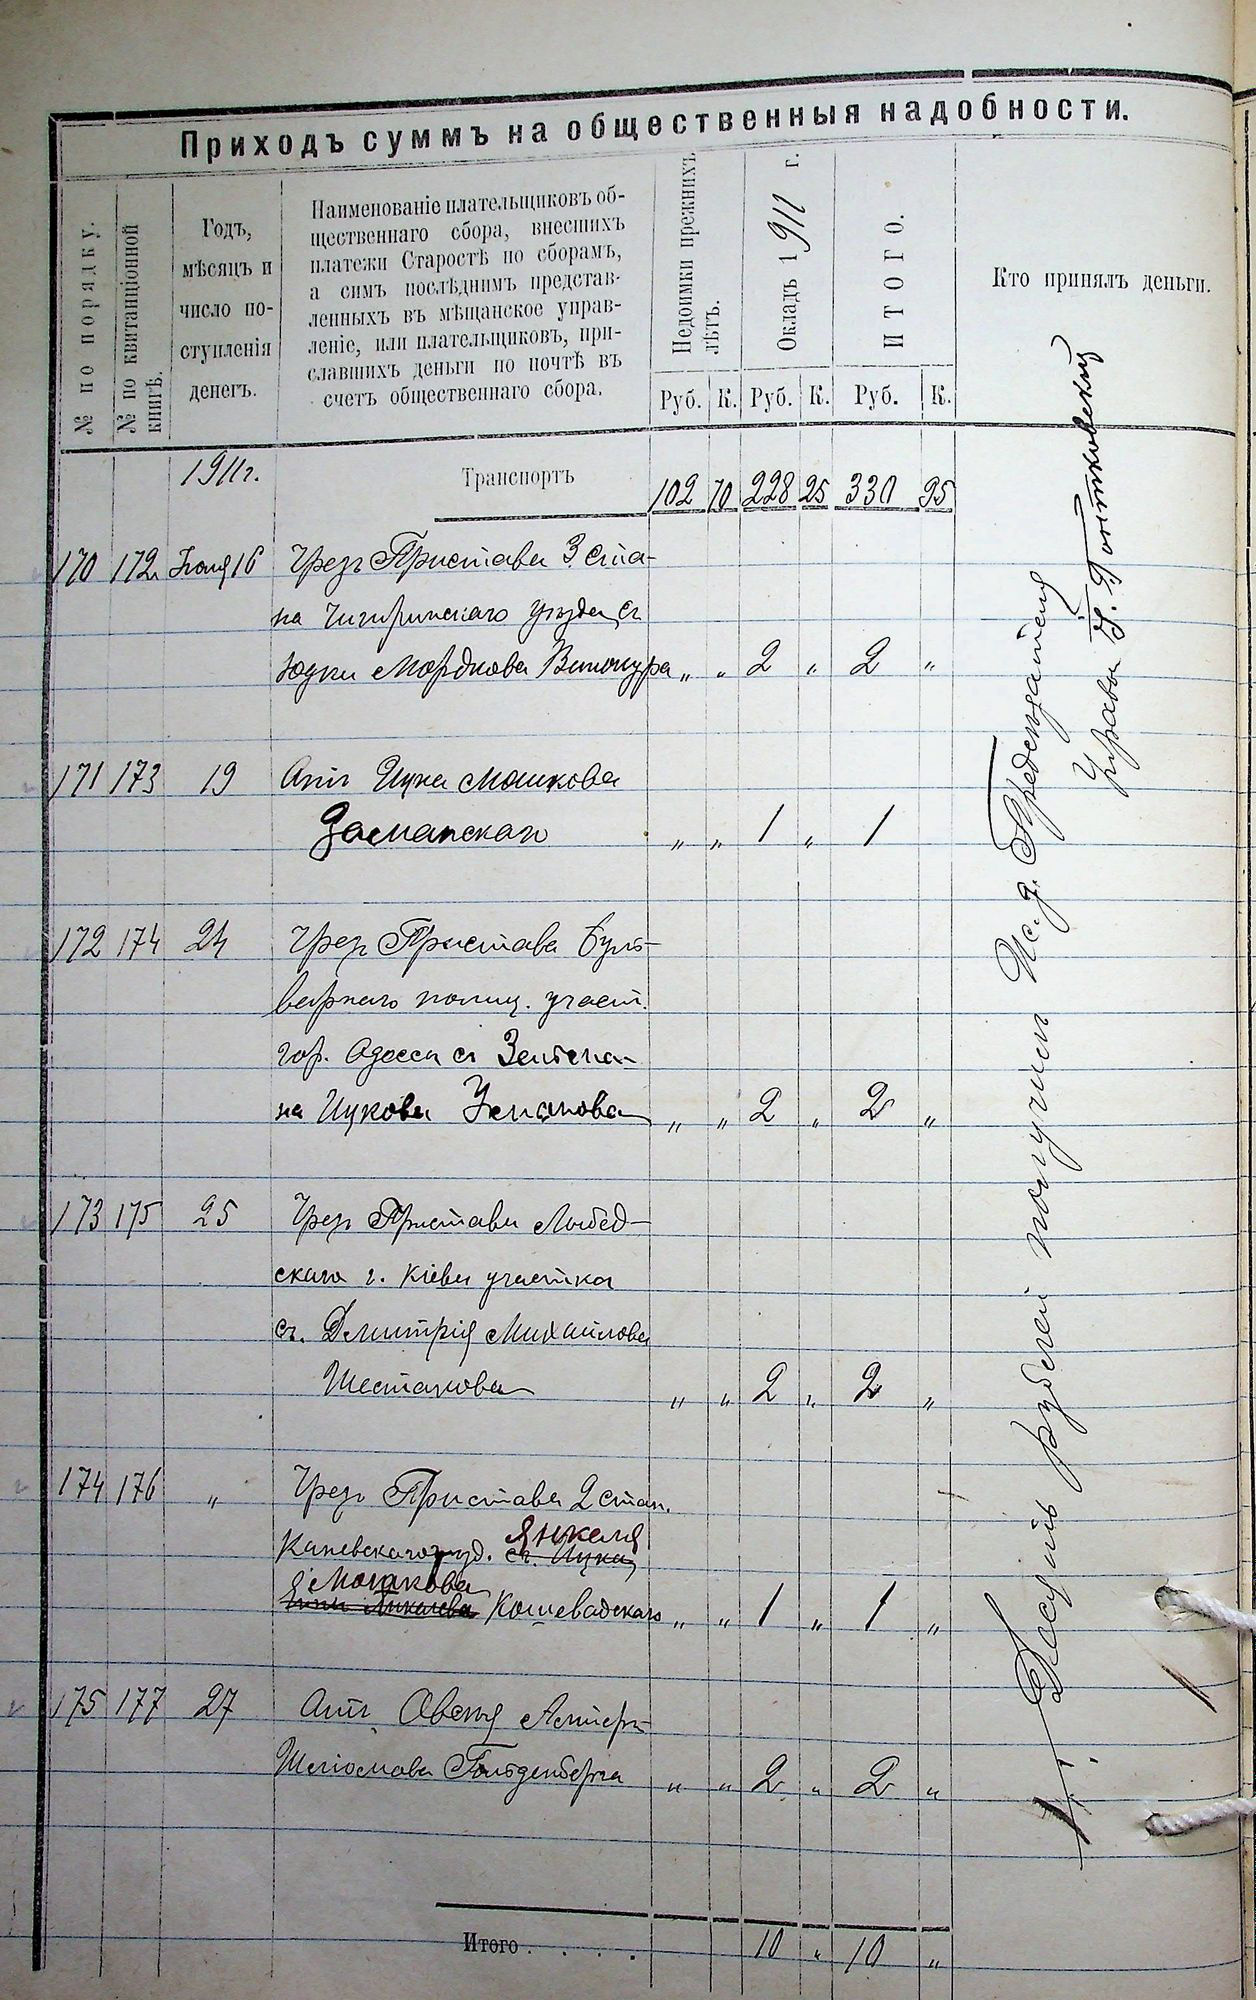 Приходъ суммъ на общественныя надобности.
№ по порядку.
№ по квитанціонной
книгѣ.
Годъ,
мѣсяцъ и
число по-
ступленія
денегъ.
Наименованіе плательщиковъ об-
щественнаго сбора, внесшихъ
платежи Старостѣ по сборамъ,
а симъ послѣднимъ представ-
ленныхъ въ мѣщанское управ-
леніе, или плательщиковъ, при-
славшихъ деньги по почтѣ въ
счетъ общественнаго сбора.
Недоимки прежнихъ
лѣтъ.
Окладъ 1911 г.
ИТОГО.
Кто принялъ деньги.
Руб. К. Руб. К. Руб. К.
1911г. Транспортъ 102 70 228 25 330 95
170 172 16 Чрезъ Пристава 3 ста-
на Чигиринскаго уѣзда съ
Юдки Мордкова Винокура „ „ 2 „ 2 „
171 173 19 Отъ Ицка Мошкова
Заманскаго „ „ 1 „ 1
172 174 24 Чрез Пристава Буль-
варнаго полиц. участ.
гор. Одессы съ
на Ицкова „ „ 2 „ 2 „
173 175 25 Чрез Пристава Лыбед-
скаго г. Кіева участка
съ. Дмитрія Михайлова
Шестакова „ „ 2 „ 2 „
174 176 „ Чрезъ Пристава 2 стан.
Каневскаго уѣзд. съ. Ицка Янкеля
Мошкова
Кошевадскаго „ „ 1 „ 1 „
175 177 27 Отъ Овсея
Шліомова Гольденберга „ „ 2 „ 2 „
Итого . . . . 10 „ 10 „
Десять рублей получилъ Ис. д. Предсѣдателя
Управы